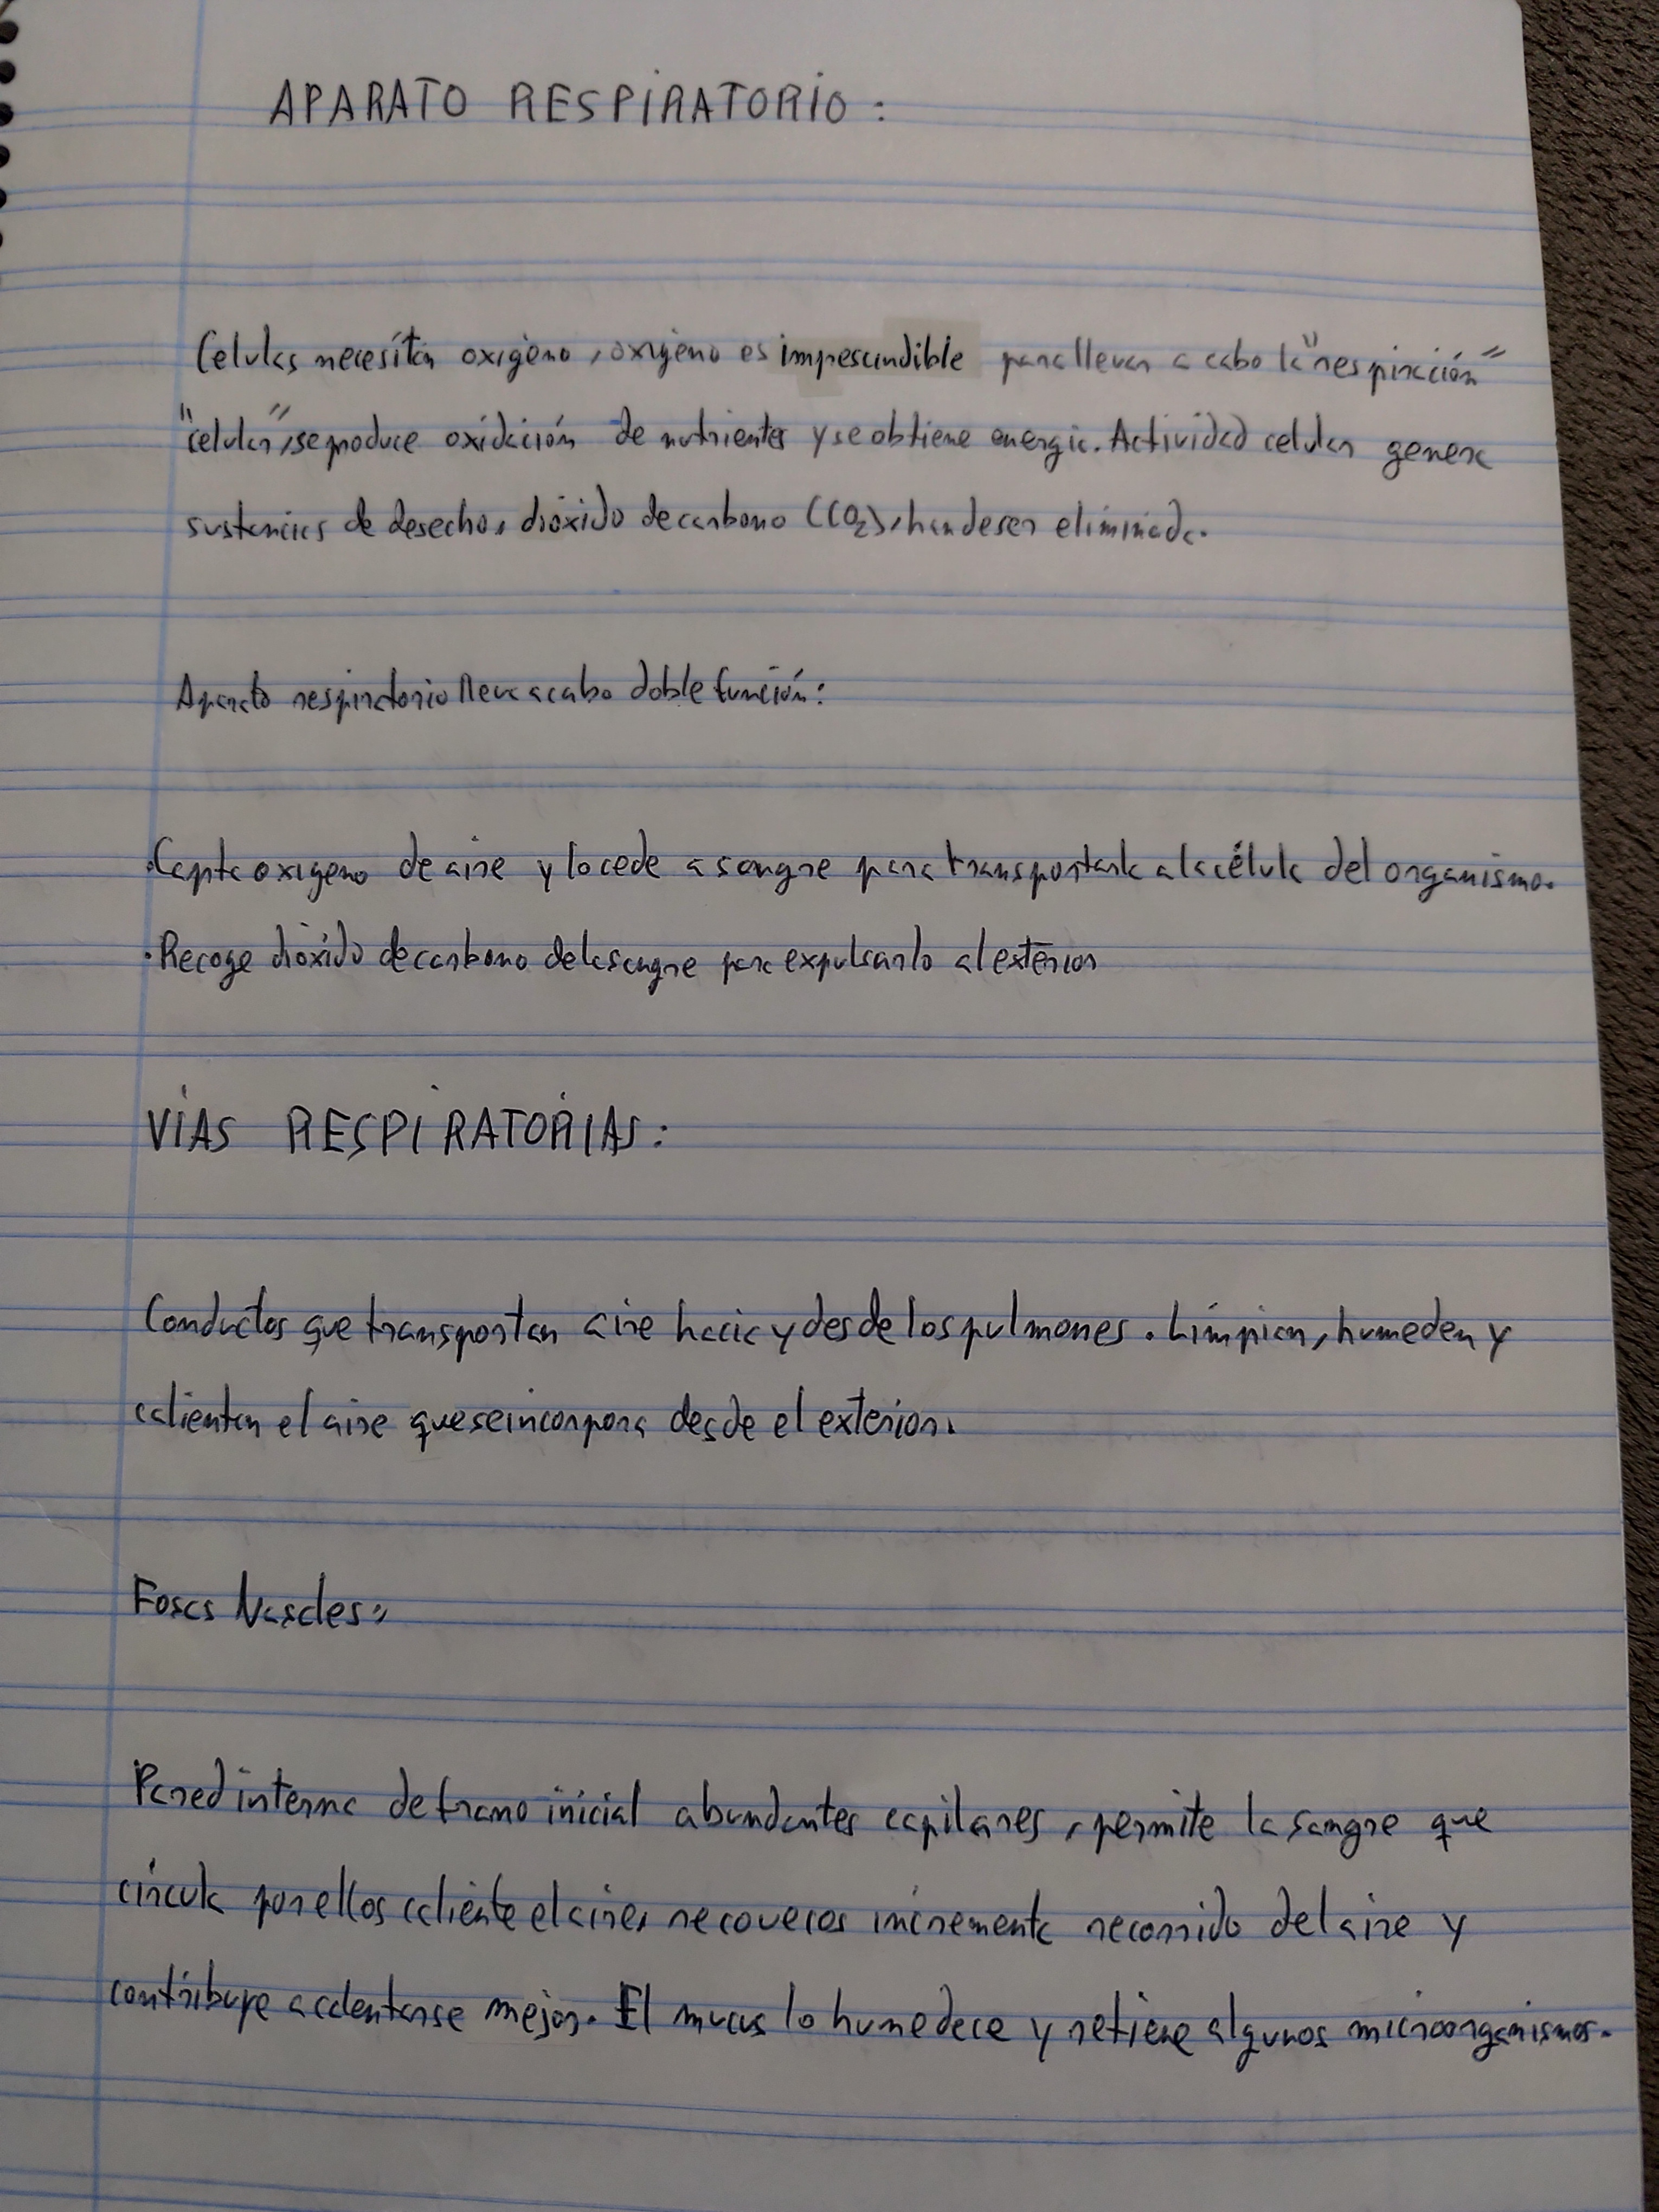 APARATO RESPIRATORIO:
Celulas necesitan oxigeno, oxigeno es impescindible para llevar a cabo la "respiración"
"celular", se produce oxidación de nutrientes y se obtiene energia. Actividad celular genera
sustancias de desecho, dióxido de carbono (CO2), han de ser eliminada.
Aparato respiratorio lleva a cabo doble función:
·Capta oxigeno de aire y lo cede a sangre para transportarla a la célula del organismo.
·Recoge dióxido de carbono de la sangre para expulsarlo al exterior
VIAS RESPIRATORIAS:
Conductos que transportan aire hacia y desde los pulmones. Limpian, humeden y
calientan el aire que se incorpora desde el exterior.
Fosas Nasales:
Pared interna de tramo inicial abundantes capilares, permite la sangre que
circula por ellos caliente el aire, recovecos incrementa recorrido del aire y
contribuye a calentarse mejor. El mucus lo humedece y retiene algunos microorganismos.